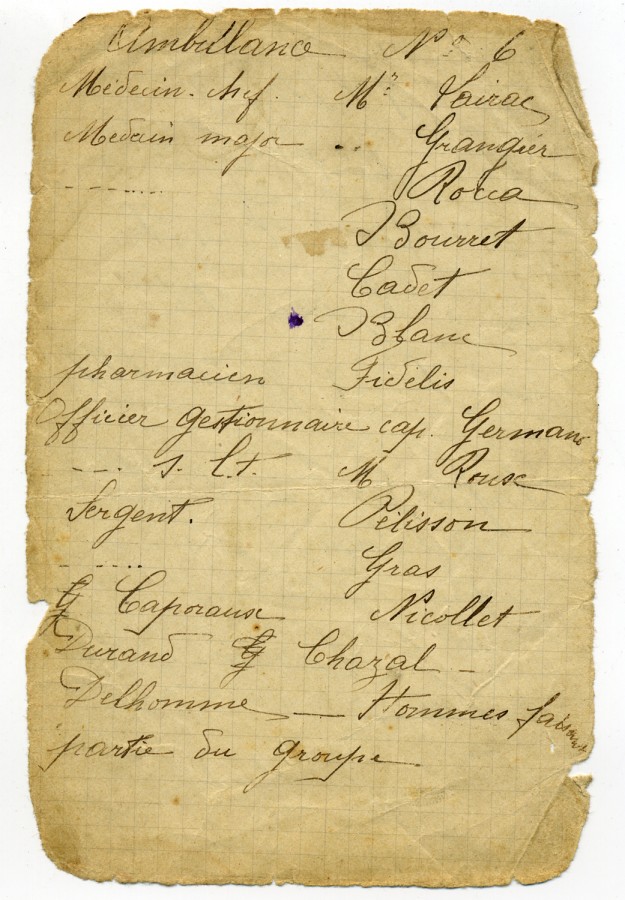 Ambulance N° 6
Médecin-chef. Mr Vairac
Médecin major .. Grangier
- - - .... Rocca
Bourret
Cadet
Blanc
pharmacien Fidélis
Officier gestionnaire cap. Germain
- - - . S. Lt. M Roux
Sergent. Pélisson
- - .... Gras
Caporaux Nicollet
Durand Chazal -
Delhomme — Hommes faisant
partie du groupe